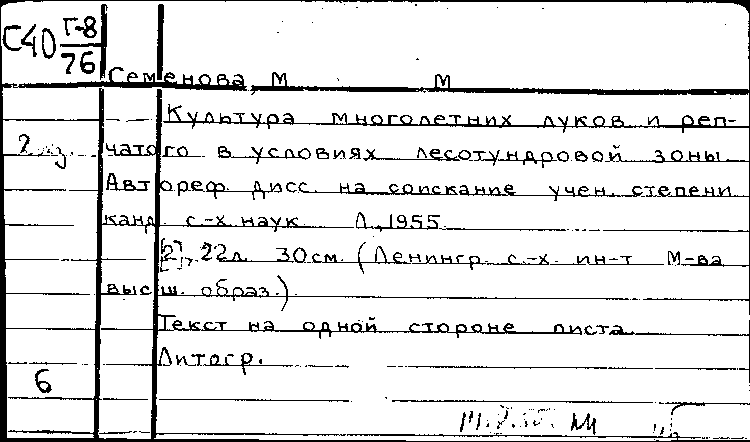 С40 Г-8/76
Семенова, М М
Культура многолетних луков и реп-
2
чатого в условиях лесотундровой зоны.
Автореф. дисс. на соискание учен. степени
канд. с.-х. наук Л., 1955.
[2], 22л. 30см. (Ленингр. с.-х. ин-т М-ва
высш. образ.)
Текст на одной стороне листа.
Литогр.
6